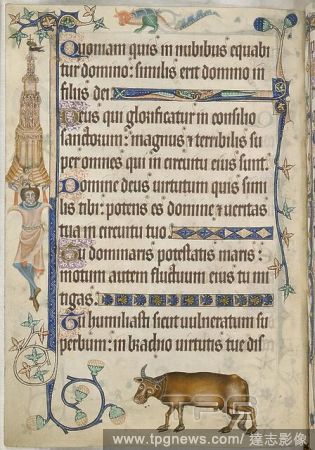 Quoniam quis in nubibus equabi
tur domino: similis erit domino in
filiis dei
Deus qui glorificatur in consilio
sanctorum: magnus ⁊ terribilis su
per omnes qui in circuitu eius sunt.
Domine deus virtutum quis simi
lis tibi: potens es domine ⁊ veritas
tua in circuitu tuo.
Tu dominaris potestatis maris:
motum autem fluctuum eius tu mi
tigas.
Tu humiliasti sicut vulneratum su
perbum: in brachio virtutis tue dis
TPG
www.tpgnews.com/ 達志影像